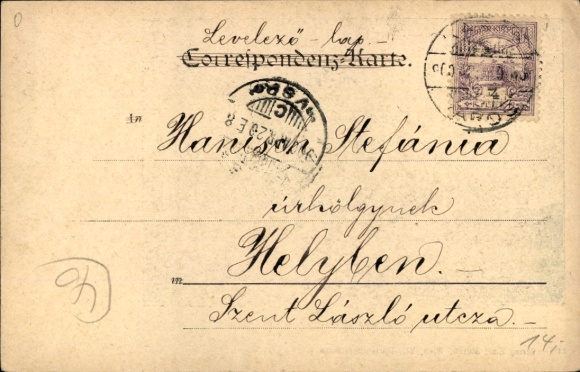 Levelező - lap -
Correspondenz-Karte.
An Hanisch Stefánia
úrhölgynek
in Helyben. -
Szent László utcza. -
14,-